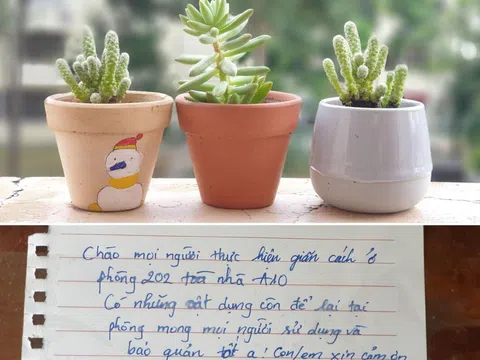 Chào mọi người thực hiện giãn cách ở
phòng 202 toà nhà A10
Có những vật dụng còn để lại tại
phòng mong mọi người sử dụng và
bảo quản tốt ạ! Con/em xin cảm ơn